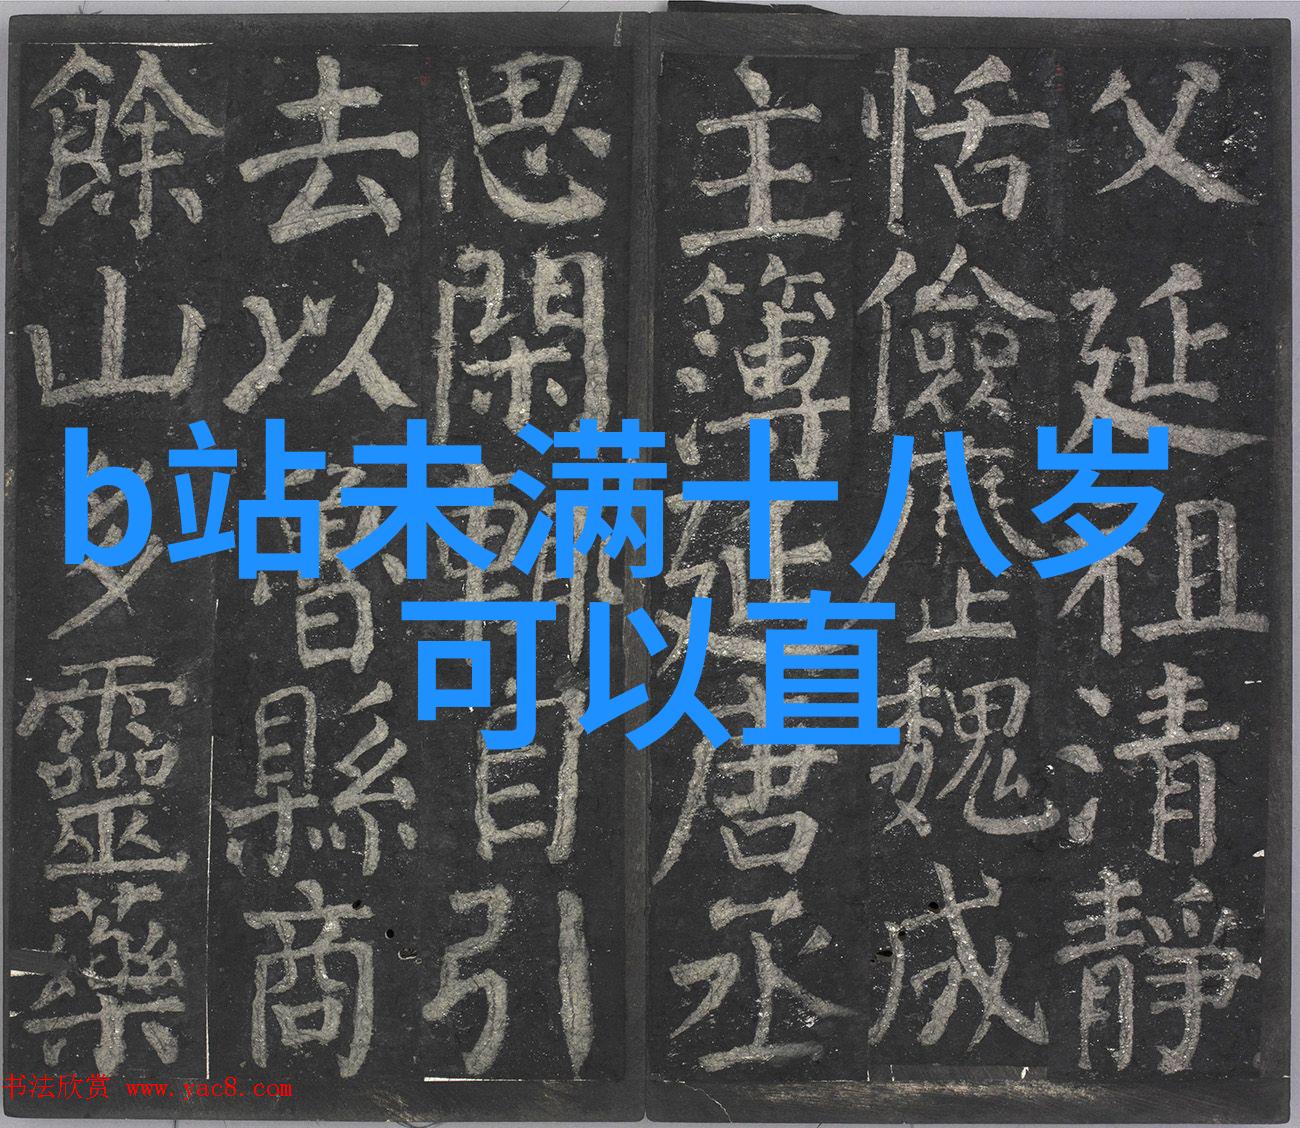 b站未满十八岁
可以直
父延祖清靜
恬儉歷魏成
主簿延唐丞
思閑輒自引
去以魯縣商
餘山多靈藥
书法欣赏 www.yac8.com